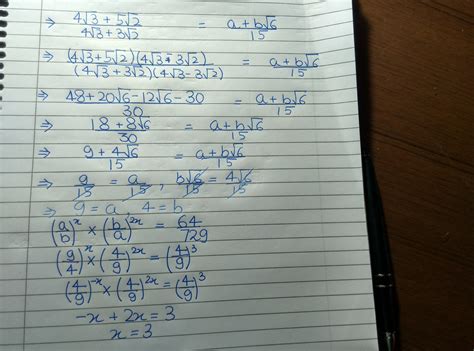 ⇒ (4√3 + 5√2)/(4√3 + 3√2) = (a + b√6)/15
⇒ ((4√3 + 5√2)(4√3 - 3√2))/((4√3 + 3√2)(4√3 - 3√2)) = (a + b√6)/15
⇒ (48 + 20√6 - 12√6 - 30)/30 = (a + b√6)/15
⇒ (18 + 8√6)/30 = (a + b√6)/15
⇒ (9 + 4√6)/15 = (a + b√6)/15
⇒ 9/15 = a/15, b√6/15 = 4√6/15
⇒ 9 = a, 4 = b
(a/b)^x × (b/a)^2x = 64/729
(9/4)^x × (4/9)^2x = (4/9)^3
(4/9)^-x × (4/9)^2x = (4/9)^3
-x + 2x = 3
x = 3